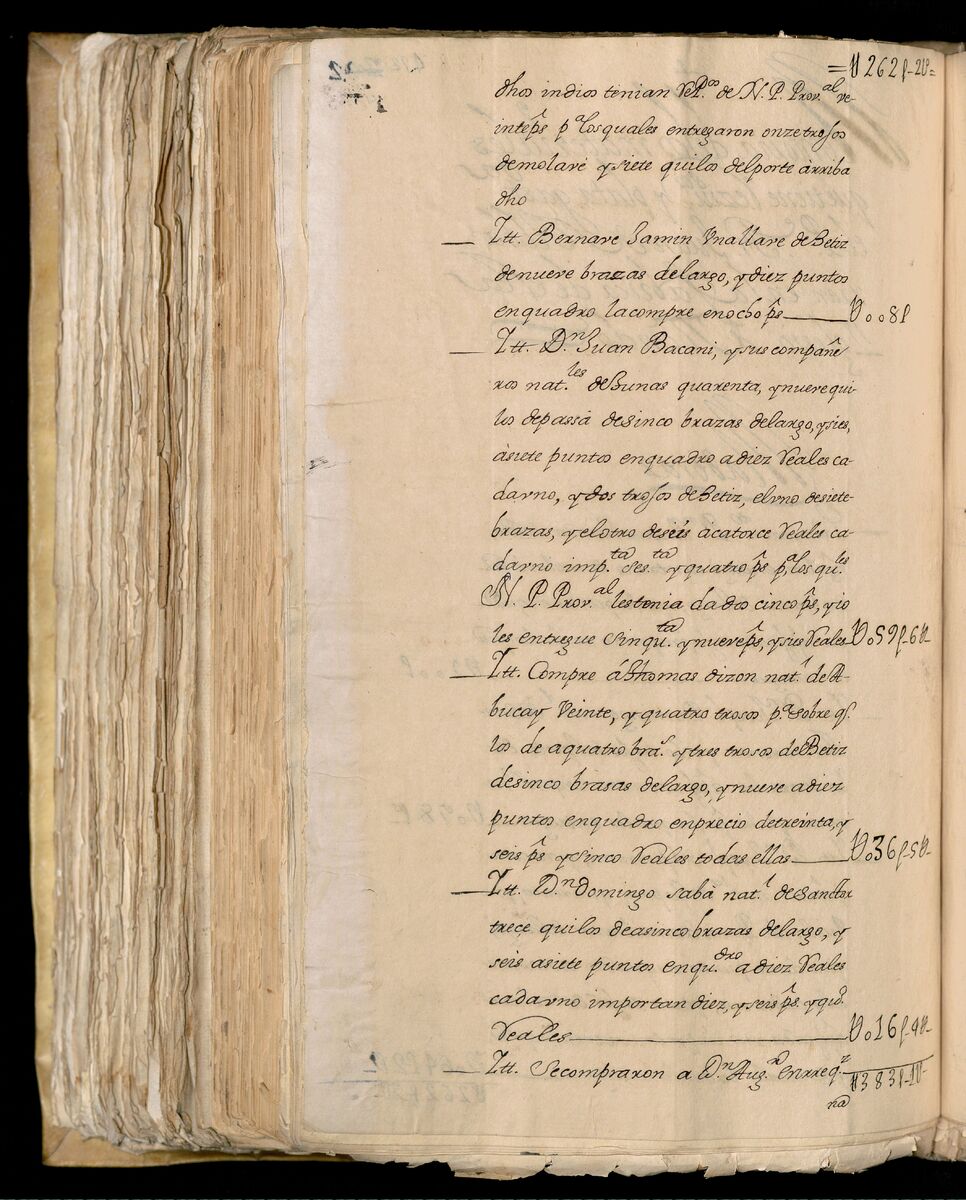 =U262p-2rs=
dhos indios tenian Rev.P.es de N. P. Prov.al ve-
inte ps pa los quales entregaron onze trosos
de molave y siete quilos del porte àrriba
dho
Itt. Bernave Samin Vna llave de Betiz
de nueve brazas de largo, y diez puntos
en quadro la compre en ocho ps ___ U008p
Itt. D.n Juan Bacani, y sus compañe
ros nat.les de Bunas quarenta, y nueve qui-
los de passà de sinco brazas de largo, y seis,
à siete puntos en quadro a diez Reales ca-
da vno, y dos trosos de Betiz, el vno de siete
brazas, y el otro de seis à catorce Reales ca-
da vno imp.ta ses.ta y quatro ps pa los qu.les
N. P. Prov.al les tenia dados cinco ps, y io
les entregue sinqu.ta y nueve ps, y sus Reales U059p-6rs-
Itt. Compre á Thomas dizon nat.l de A-
bucay Veinte, y quatro trosos pa sobre q.
los de a quatro bras. y tres trosos de Betiz
de sinco brasas de largo, y nueve a diez
puntos en quadro en precio de treinta, y
seis ps y sinco Reales todas ellas ___ U036p-5rs-
Itt. D.n Domingo sabà nat.l de
trece quilos de a sinco brazas de largo, y
seis a siete puntos en qu.dro a diez Reales
cada vno importan diez, y seis ps. y qo.
Reales ___ U016p-4rs-
Itt. Se compraron a D.n Aug.n Enrreq.z U383p-1r-
na